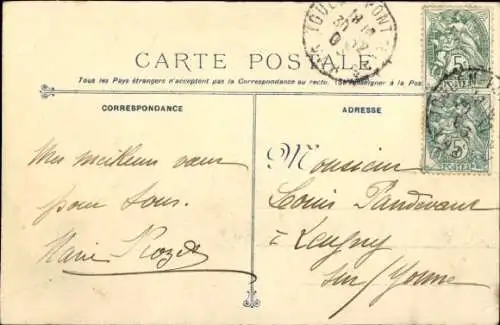 CARTE POSTALE
Tous les Pays étrangers n'acceptent pas la Correspondance au recto. (Se renseigner à la Pos
CORRESPONDANCE
ADRESSE
Mes meilleurs vœux
pour tous.
Marie Roze
Monsieur
Louis
à Leugny
sur/Yonne
5
5